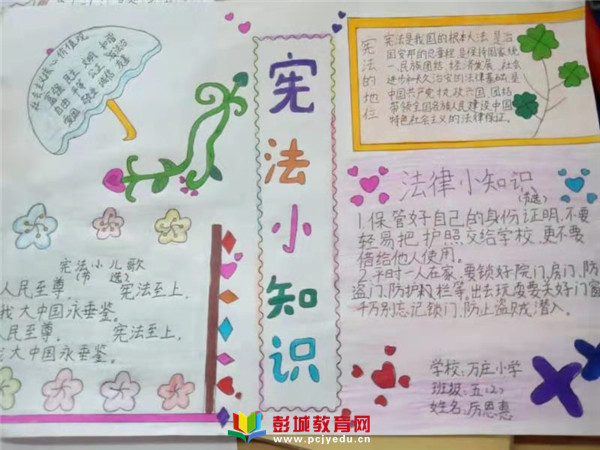 社会主义核心价值观
富强 民主 文明 和谐
自由 平等 公正 法治
爱国 敬业 诚信 友善
宪法小知识
宪法的地位
宪法是我国的根本大法,是治
国安邦的总章程,是保持国家统
一、民族团结、经济发展、社会
进步和长治久安的法律基础,是
中国共产党执政兴国、团结
带领全国各族人民建设中国
特色社会主义的法律保证。
宪法小儿歌
(节选)
人民至尊 宪法至上,
我大中国永垂鉴。
人民至尊, 宪法至上,
我大中国永垂鉴。
法律小知识
(节选)
1.保管好自己的身份证明,不要
轻易把护照交给学校,更不要
借给他人使用。
2.平时一人在家,要锁好院门、房门、防
盗门、防护栏等,出去玩耍要关好门窗
千万别忘记锁门,防止盗贼潜入。
学校:万庄小学
班级:五(2)
姓名:厉恩惠
彭城教育网
www.pcjyedu.cn